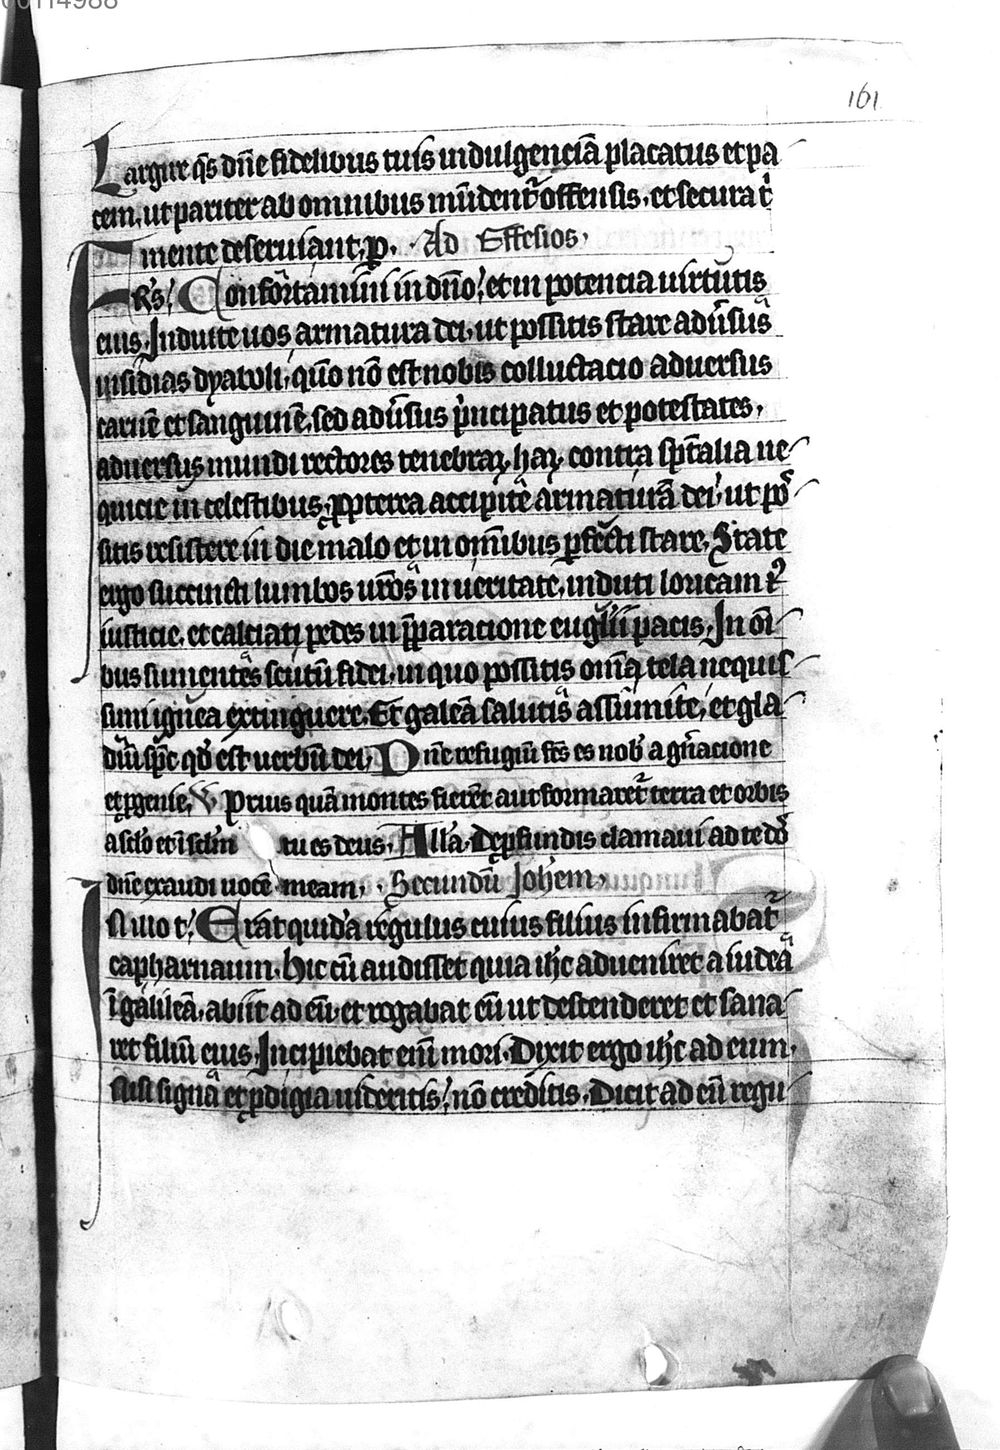 00114988
161
Largire q̄s dn̄e fidelibus tuis indulgenciā placatus et pa
cem, ut pariter ab omnibus mūdent᷑ offensis, et secura tͥ
mente deseruiant, p. Ad Effesios,
Frs̄, Confortamini in dn̄o, et in potencia uirtutis
eius. Induite uos armatura dei, ut possitis stare adu͛sus
insidias dyaboli, qm̄o nō est nobis colluctacio aduersus
carnē et sanguinē, sed adu͛sus pͥncipatus et potestates,
aduersus mundi rectores tenebraꝝ haꝝ, contra spūalia ne
quicie in celestibus, ꝓpterea accipite armaturā dei, ut pos
sitis resistere in die malo et in om̄ibus ꝑfecti stare, State
ergo succincti lumbos ur̄os in ueritate, induti loricam
iusticie, et calciati pedes in p̄paracione eug̅lii pacis, In om̄i
bus sumentes scutū fidei, in quo possitis om̄ia tela nequis
simi ignea extinguere. Et galeā salutis assumite, et gla
diū sp̄c qd̓ est uerbū dei, Dn̄e refugiū fc̄s es nob̓ a gn̄acione
et ꝓgenie, V Prius quā montes fierēt aut formaret᷑ terra et orbis
a sc̄lo et ī sc̄lm tu es deus, All'a. De ꝓfundis clamaui ad te dō
dn̄e exaudi uocē meam, Secundū Joh̄em,
In illo t', Erat quidā regulus cuius filius infirmabat᷑
capharnaum. Hic cū audisset quia ih̄c adueniret a iudea
ī galileā, abiit ad eū, et rogabat eū ut descenderet et sana
ret filiū eius, Incipiebat enī mori. Dixit ergo ih̄c ad eum,
nisi signa et ꝓdigia uideritis, nō creditis. Dicit ad eū regu